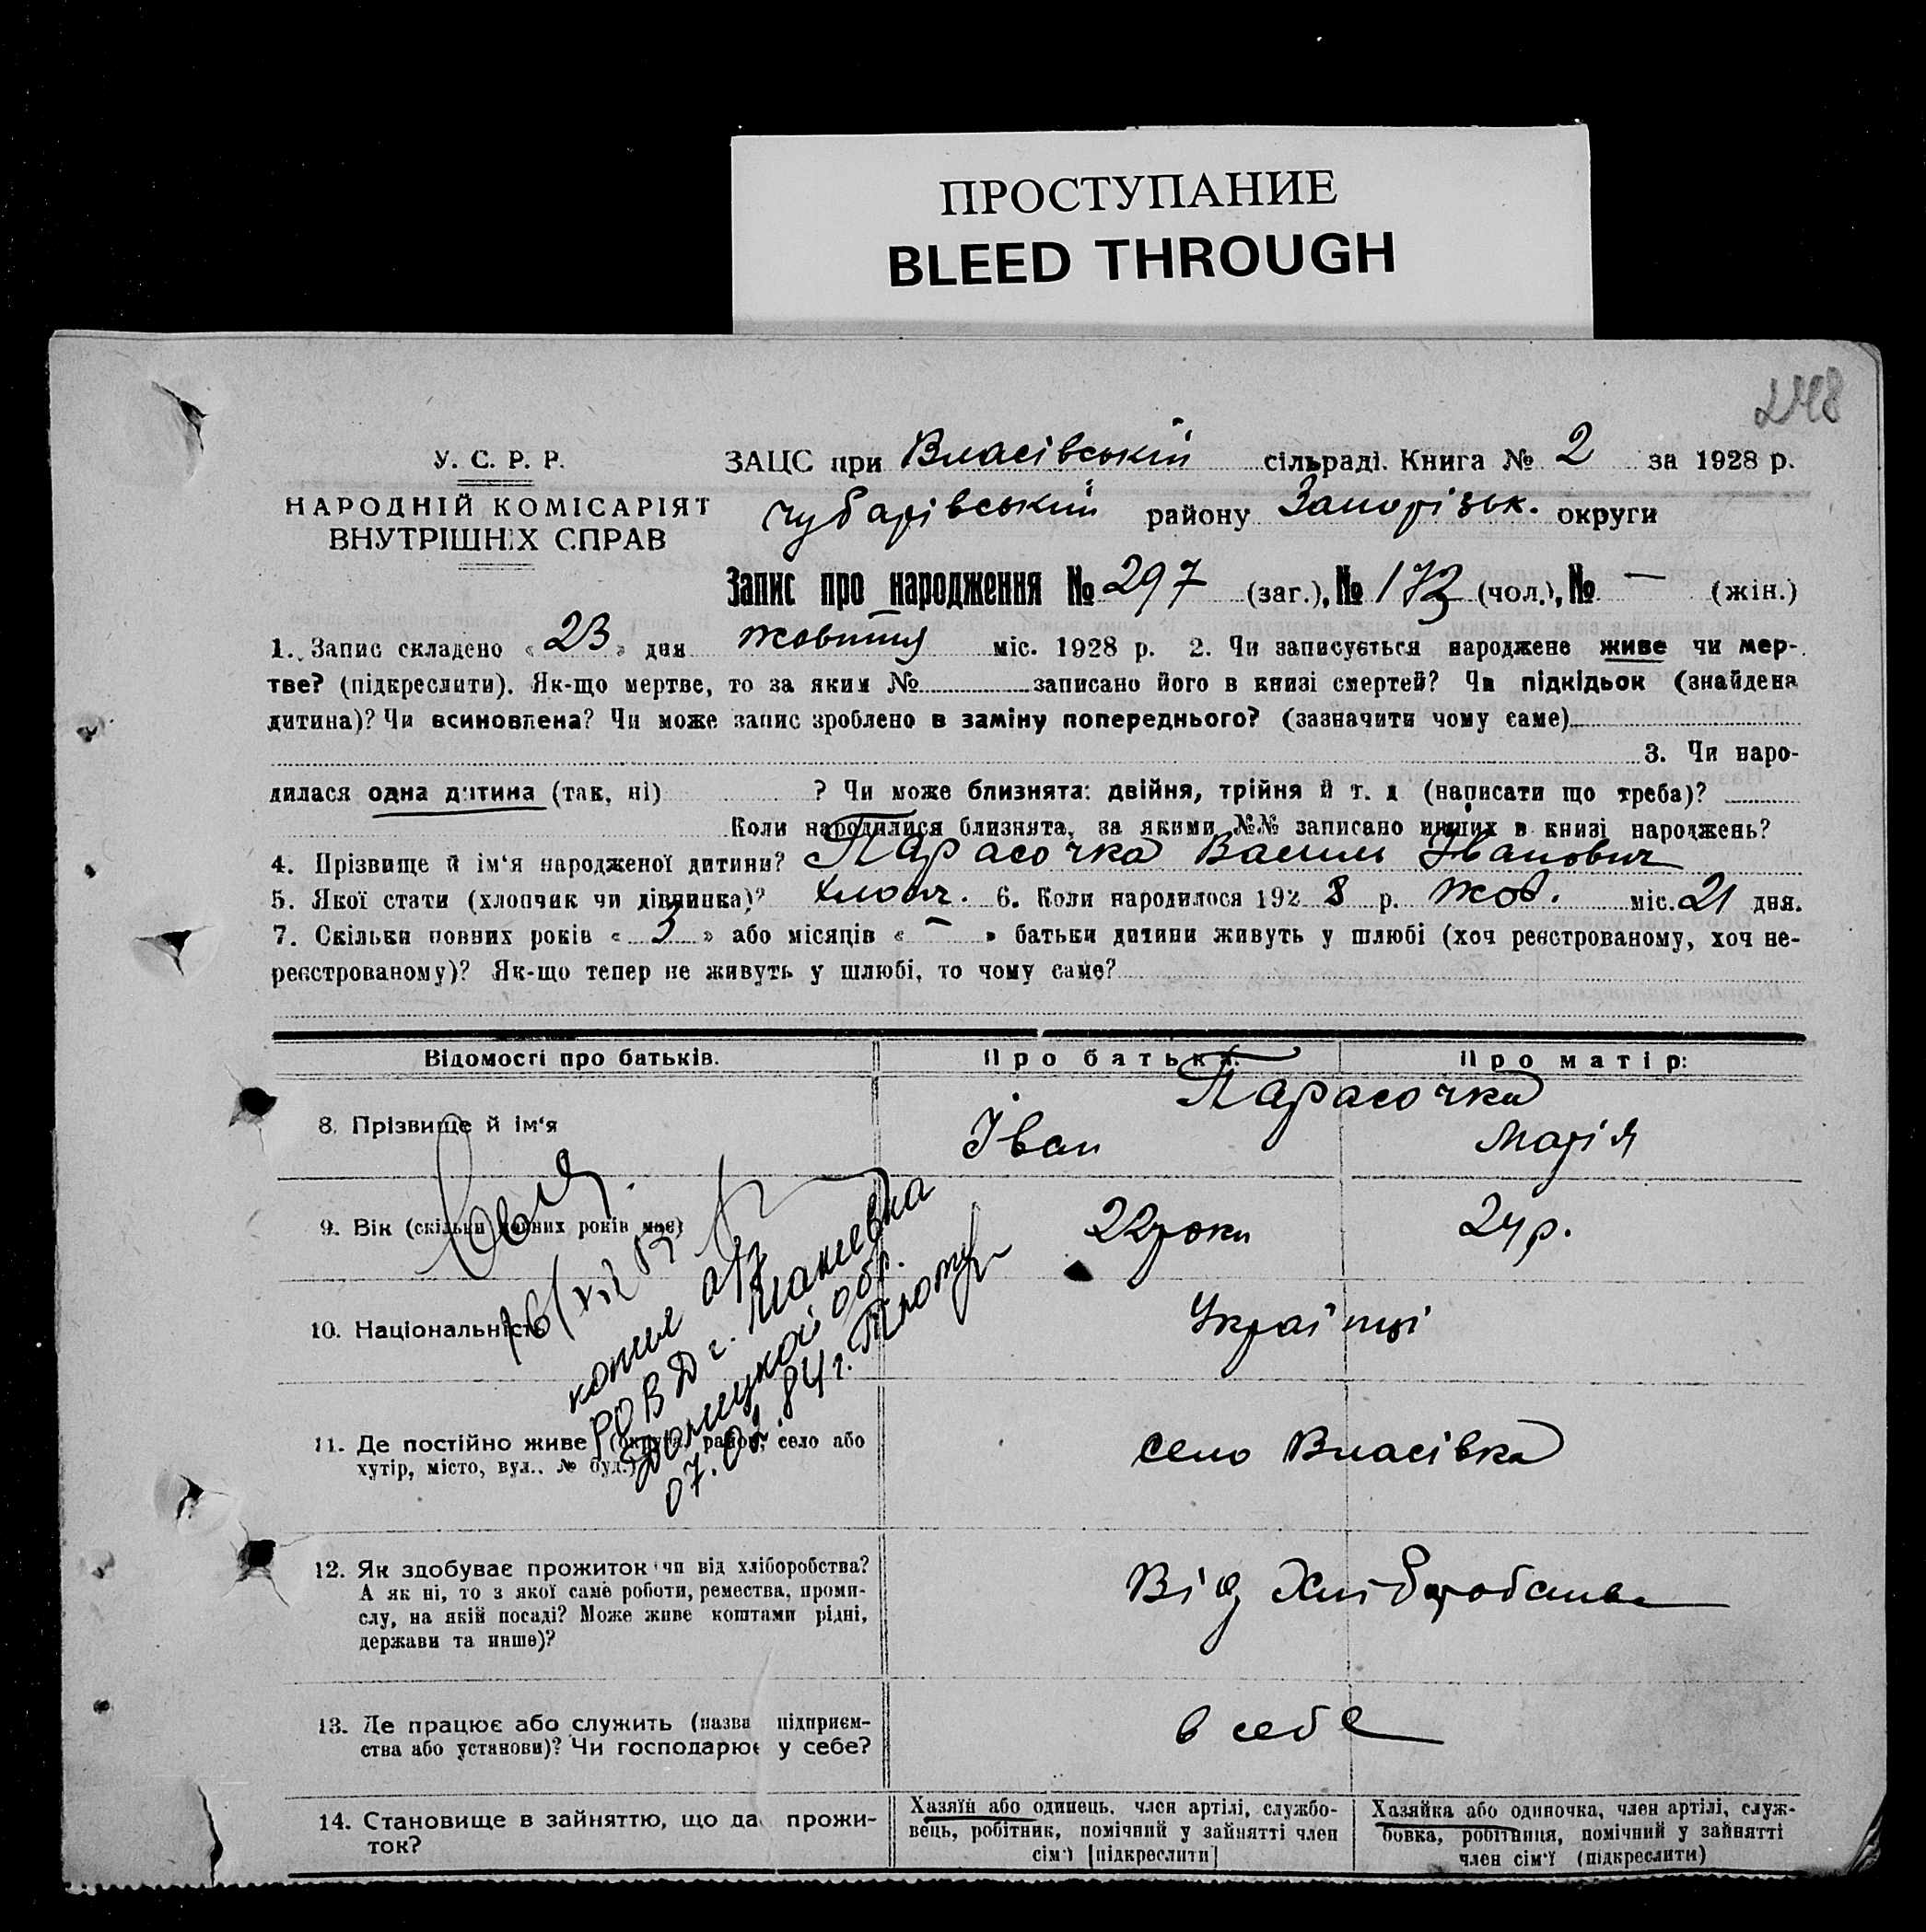 ПРОСТУПАНИЕ
BLEED THROUGH
248
У. С. Р. Р.
НАРОДНІЙ КОМІСАРІЯТ
ВНУТРІШНІХ СПРАВ
ЗАЦС при Власівській сільраді. Книга № 2 за 1928 р.
Чубарівський району Запорізьк. округи
Запис про народження № 297 (заг.), № 173 (чол.), № — (жін.)
1. Запис складено «23» дня жовтня міс. 1928 р. 2. Чи записується народжене живе чи мер-
тве? (підкреслити). Як-що мертве, то за яким № записано його в книзі смертей? Чи підкідьок (знайдена
дитина)? Чи всиновлена? Чи може запис зроблено в заміну попереднього? (зазначити чому саме)
3. Чи наро-
дилася одна дитина (так, ні) ? Чи може близнята: двійня, трійня й т. д (написати що треба)?
Коли народилися близнята, за якими №№ записано инших в книзі народжень?
4. Прізвище й ім'я народженої дитини? Парасочка Василь Іванович
5. Якої стати (хлопчик чи дівчинка)? хлопч. 6. Коли народилося 1928 р. жов. міс. 21 дня.
7. Скільки повних років «3» або місяців «—» батьки дитини живуть у шлюбі (хоч реєстрованому, хоч не-
реєстрованому)? Як-що тепер не живуть у шлюбі, то чому саме?
Відомості про батьків. Про батька: Про матір:
Парасочка
8. Прізвище й ім'я Іван Марія
9. Вік (скільки повних років має) 22 роки 24 р.
10. Національність Українці
копия
РОВД г. Макеевка
Донецкой обр.
07.02.84 г.
11. Де постійно живе (округа, район, село або
хутір, місто, вул.. № буд.) село Власівка
12. Як здобуває прожиток чи від хліборобства?
А як ні, то з якої саме роботи, ремества, проми-
слу, на якій посаді? Може живе коштами рідні,
держави та инше)?
Від Хліборобства
13. Де працює або служить (назва підприєм-
ства або установи)? Чи господарює у себе?
в себе
14. Становище в зайняттю, що да прожи-
ток?
Хазяїн або одинець, член артілі, службо-
вець, робітник, помічний у зайнятті член
сім'ї [підкреслити]
Хазяйка або одиночка, член артілі, служ-
бовка, робітниця, помічний у зайнятті
член сім'ї (підкреслити)